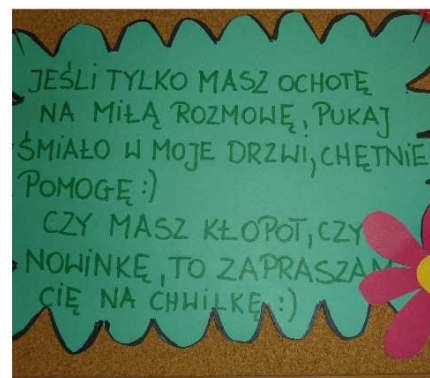 JEŚLI TYLKO MASZ OCHOTĘ
NA MIŁĄ ROZMOWĘ, PUKAJ
ŚMIAŁO W MOJE DRZWI, CHĘTNIE
POMOGĘ :)
CZY MASZ KŁOPOT, CZY
NOWINKĘ, TO ZAPRASZAM
CIĘ NA CHWILKĘ :)